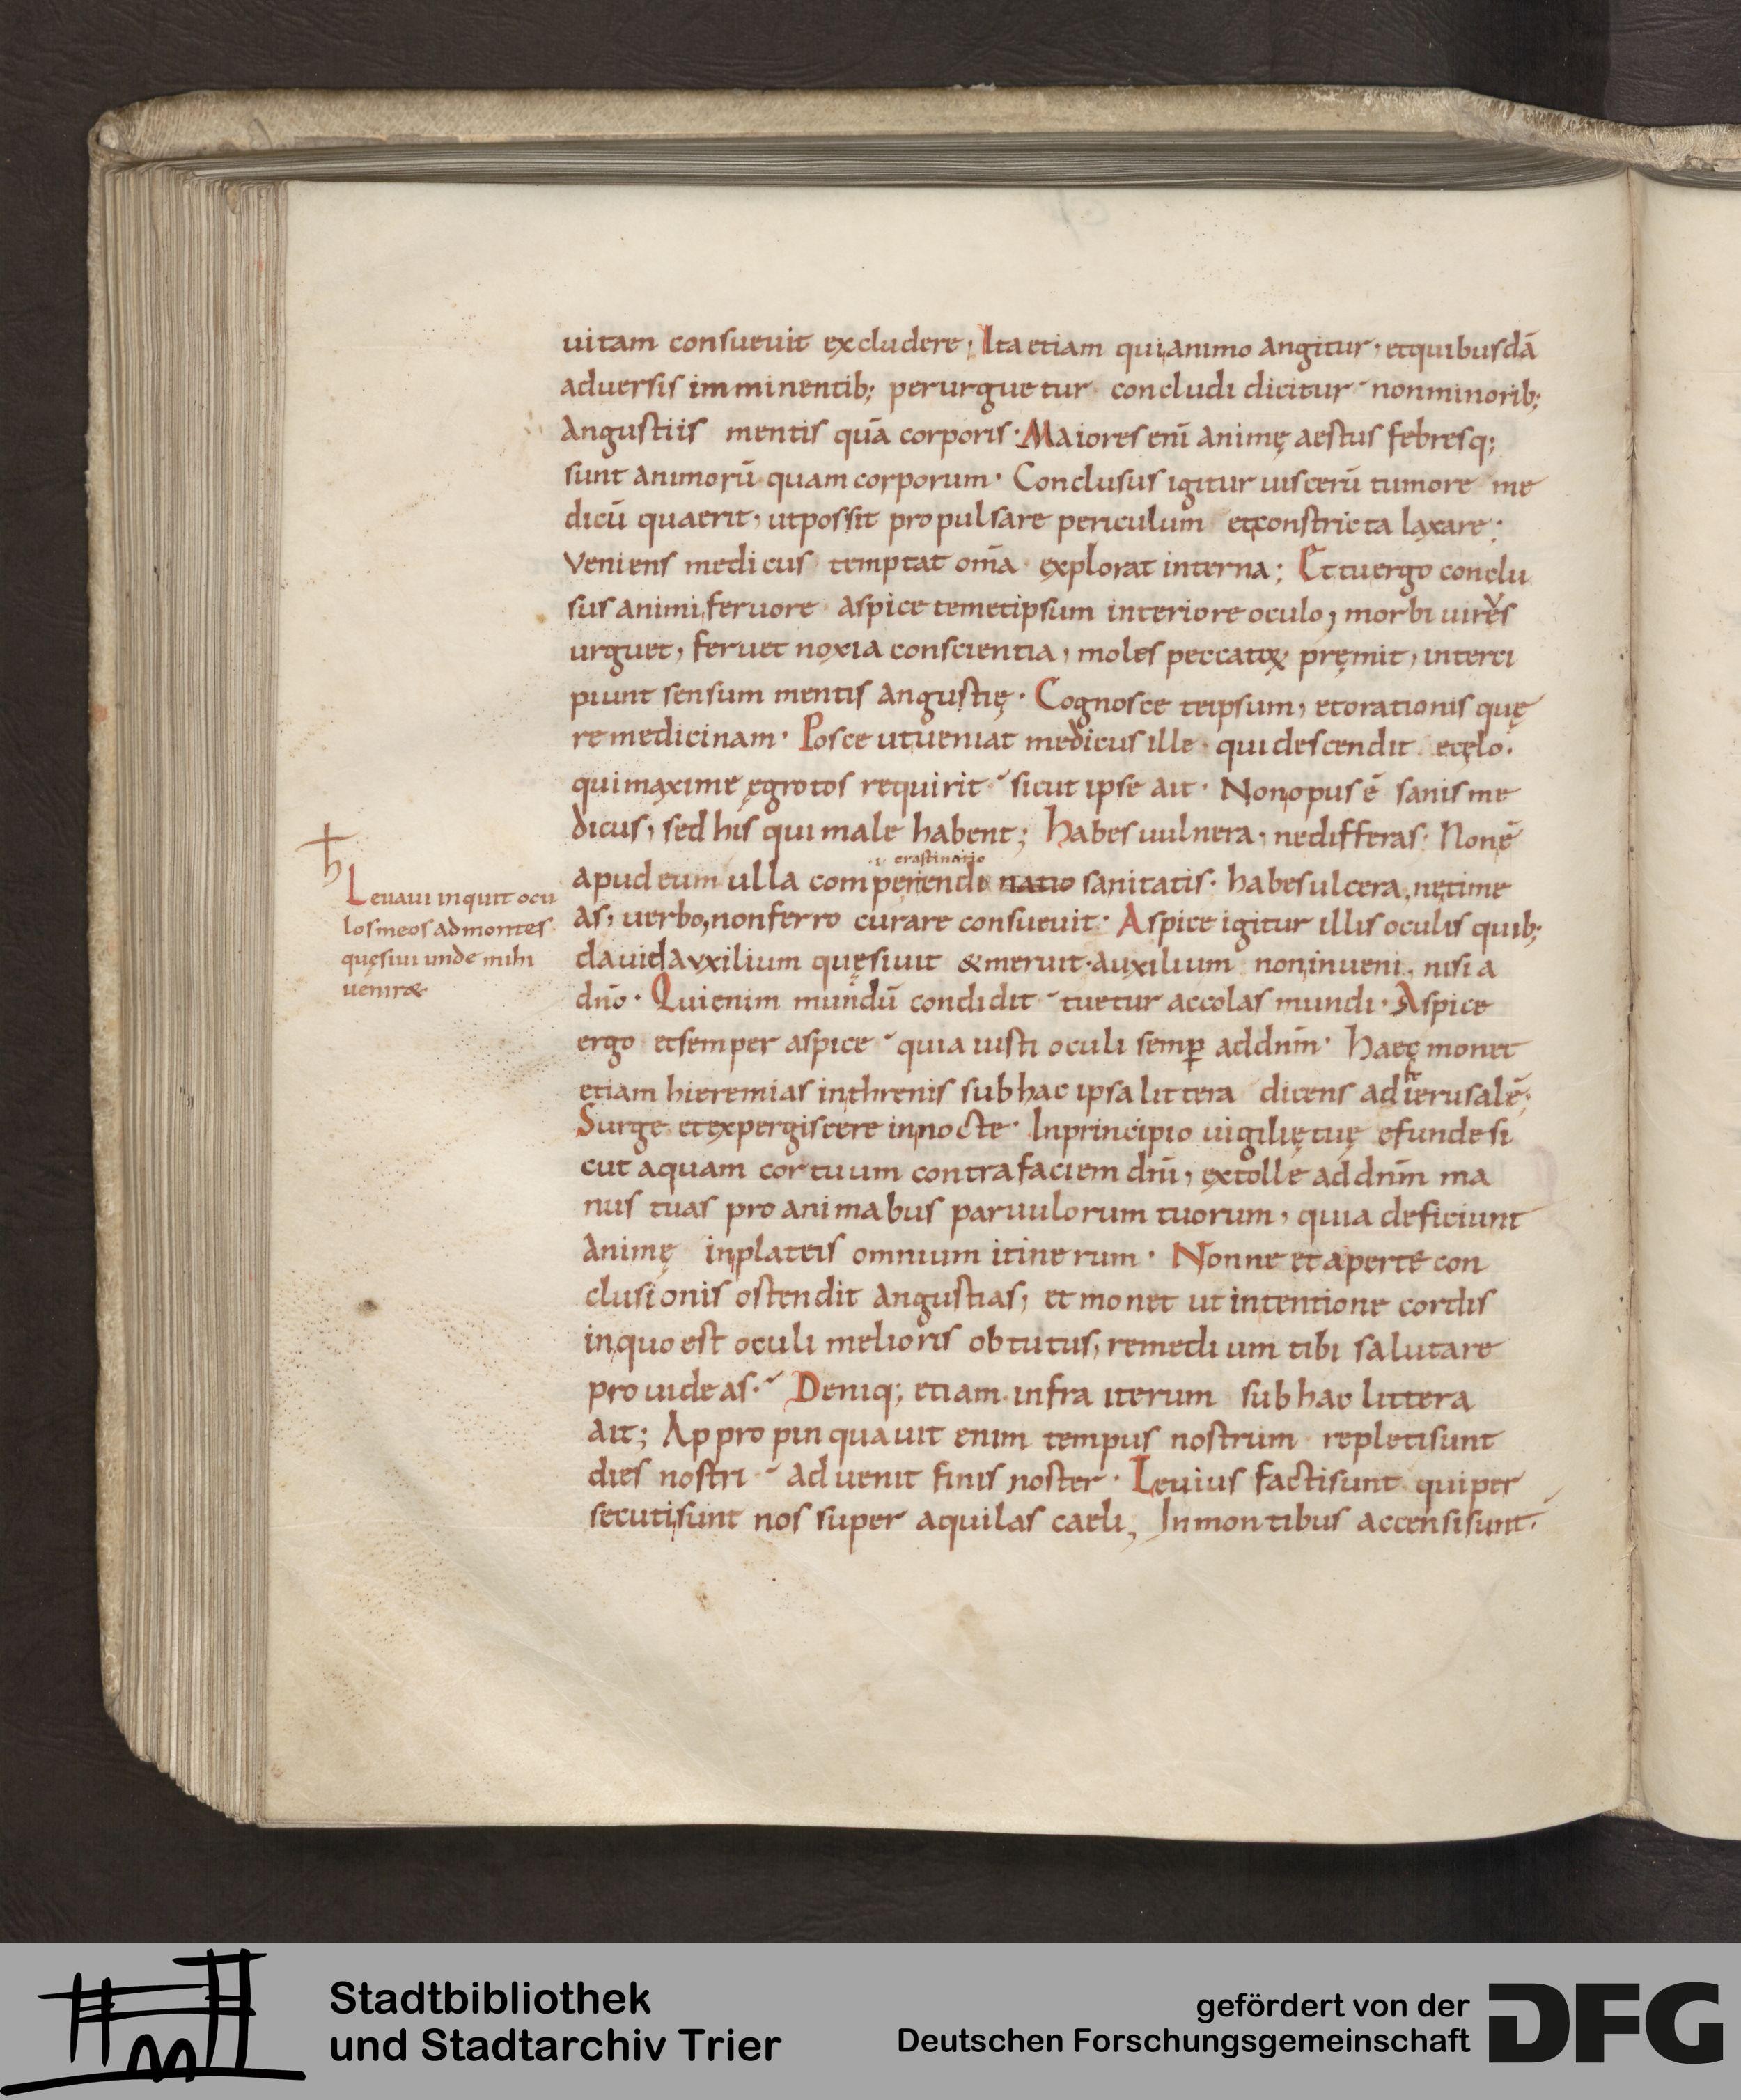 uitam consueuit excludere; Ita etiam qui animo angitur· et quibusdā
aduersis imminentib; perurguetur concludi dicitur nonminorib;
angustiis mentis quā corporis· Maiores enī animę aestus febresq;
sunt animorū quam corporum· Conclusus igitur uiscerū tumore me
dicū quaerit, ut possit propulsare periculum et constricta laxare;
Veniens medicus temptat om̄a explorat interna; Et tu ergo conclu
sus animi feruore aspice temetipsum interiore oculo, morbi uires
urguet, feruet noxia conscientia, moles peccatoꝝ pręmit, interci
piunt sensum mentis angustię· Cognosce teipsum, et orationis quę
re medicinam· Posce ut ueniat medicus ille qui descendit e cęlo·
qui maxime ęgrotos requirit sicut ipse ait· Non opus ē sanis me
dicus, sed his qui male habent; habes uulnera, ne differas· Non ē
crastinatio
apud eum ulla comperiendi natio sanitatis· habes ulcera, ne time
as, uerbo, non ferro curare consueuit· Aspice igitur illis oculis quib;
ħ
Leuaui inquit ocu
los meos ad montes
quęsiui unde mihi
ueniret
dauid auxilium quęsiuit & meruit· auxilium non inueni, nisi a
dn̄o· Qui enim mundū condidit tuetur accolas mundi· Aspice
ergo et semper aspice quia iusti oculi semꝑ ad dnm̄· haec monet
etiam hieremias in threnis sub hac ipsa littera dicens ad ierusalē;
Surge et expergiscere in nocte· In principio uigilię tuę efunde si
cut aquam cor tuum contra faciem dnī, extolle ad dnm̄ ma
nus tuas pro animabus paruulorum tuorum, quia deficiunt
animę in plateis omnium itinerum· Nonne et aperte con
clusionis ostendit angustias, et monet ut intentione cordis
in quo est oculi melioris obtutus, remedium tibi salutare
prouideas· Deniq; etiam infra iterum sub hac littera
ait; Appropinquauit enim tempus nostrum repleti sunt
dies nostri aduenit finis noster· Leuius facti sunt qui per
secuti sunt nos super aquilas caeli, In montibus accensi sunt·
Stadtbibliothek
und Stadtarchiv Trier
gefördert von der
Deutschen Forschungsgemeinschaft
DFG